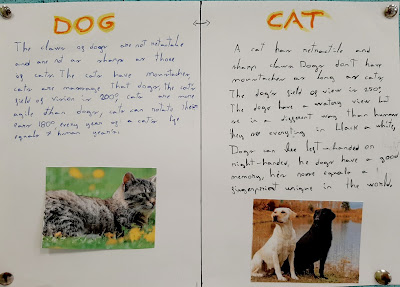 DOG
The claws of dogs are not retractable
and are not as sharps as those
of cats. The cats have moustaches
cats are more agile than dogs, the cats
field of vision is 200º, cats are more
agile than dogs, cats can rotate their
ears 180º, every year of a cat's life
equals 7 human years.
CAT
A cat has retractile and
sharp claws. Dogs don't have
moustaches as long as cats.
The dog's field of view is 250º.
The dogs have a view but
is in a different way than humans
they see everything in black & white.
Dogs can be left-handed or
right-handed, the dogs have a good
memory, her nose equals a
fingerprint unique in the world.